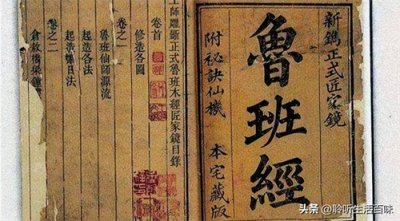 新鐫正式匠家鏡
魯班經
附祕訣仙機 本宅藏版
工師雕斲正式魯班木經匠家鏡目錄
卷首
修造各圖
卷之一
魯班仙師源流
起造各法
卷之二
头条 @聆听生活百味